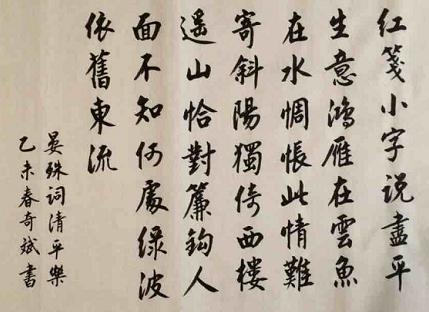 紅箋小字說盡平
生意鴻雁在雲魚
在水惆悵此情難
寄斜陽獨倚西樓
遥山恰對簾鈎人
面不知何處緑波
依舊東流
晏殊词清平樂
乙未春奇斌書